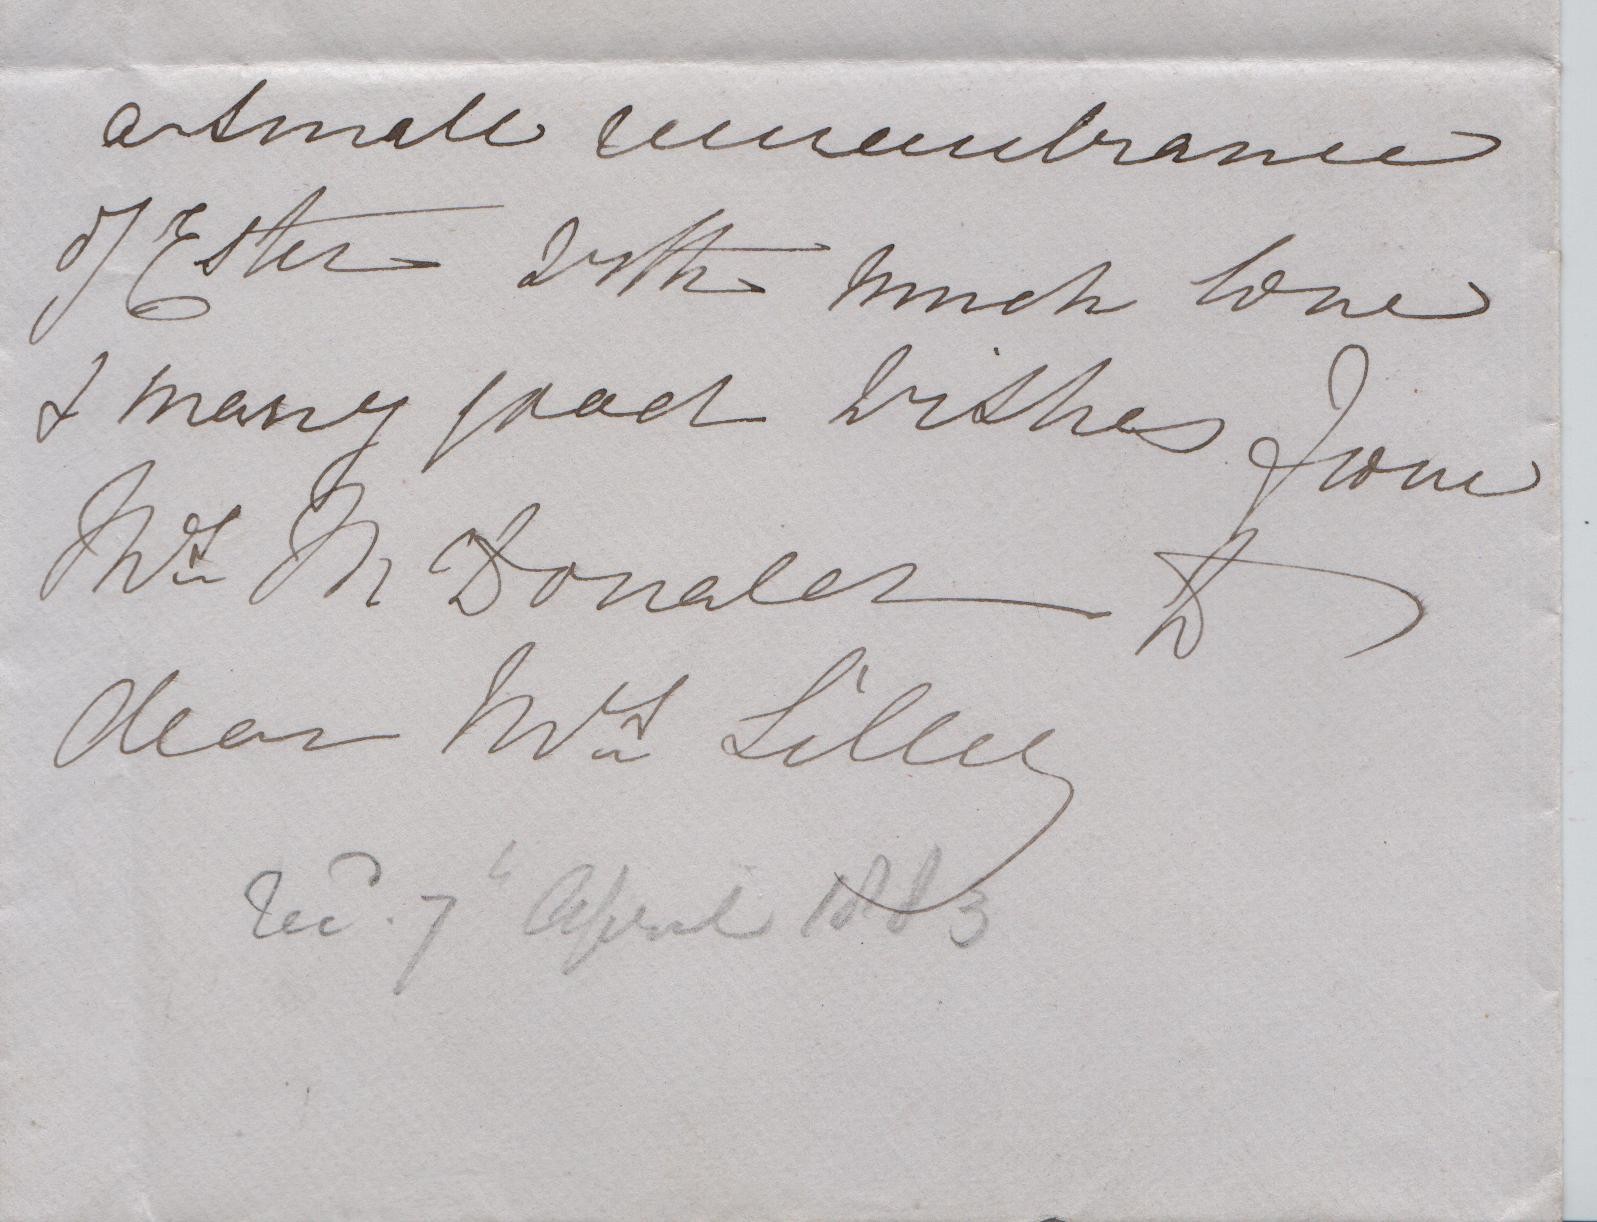 a small remembrance
of Ester with much love
& many good wishes from
Mrs McDonald to
dear Mrs Lilley
recd. 7th April 1883